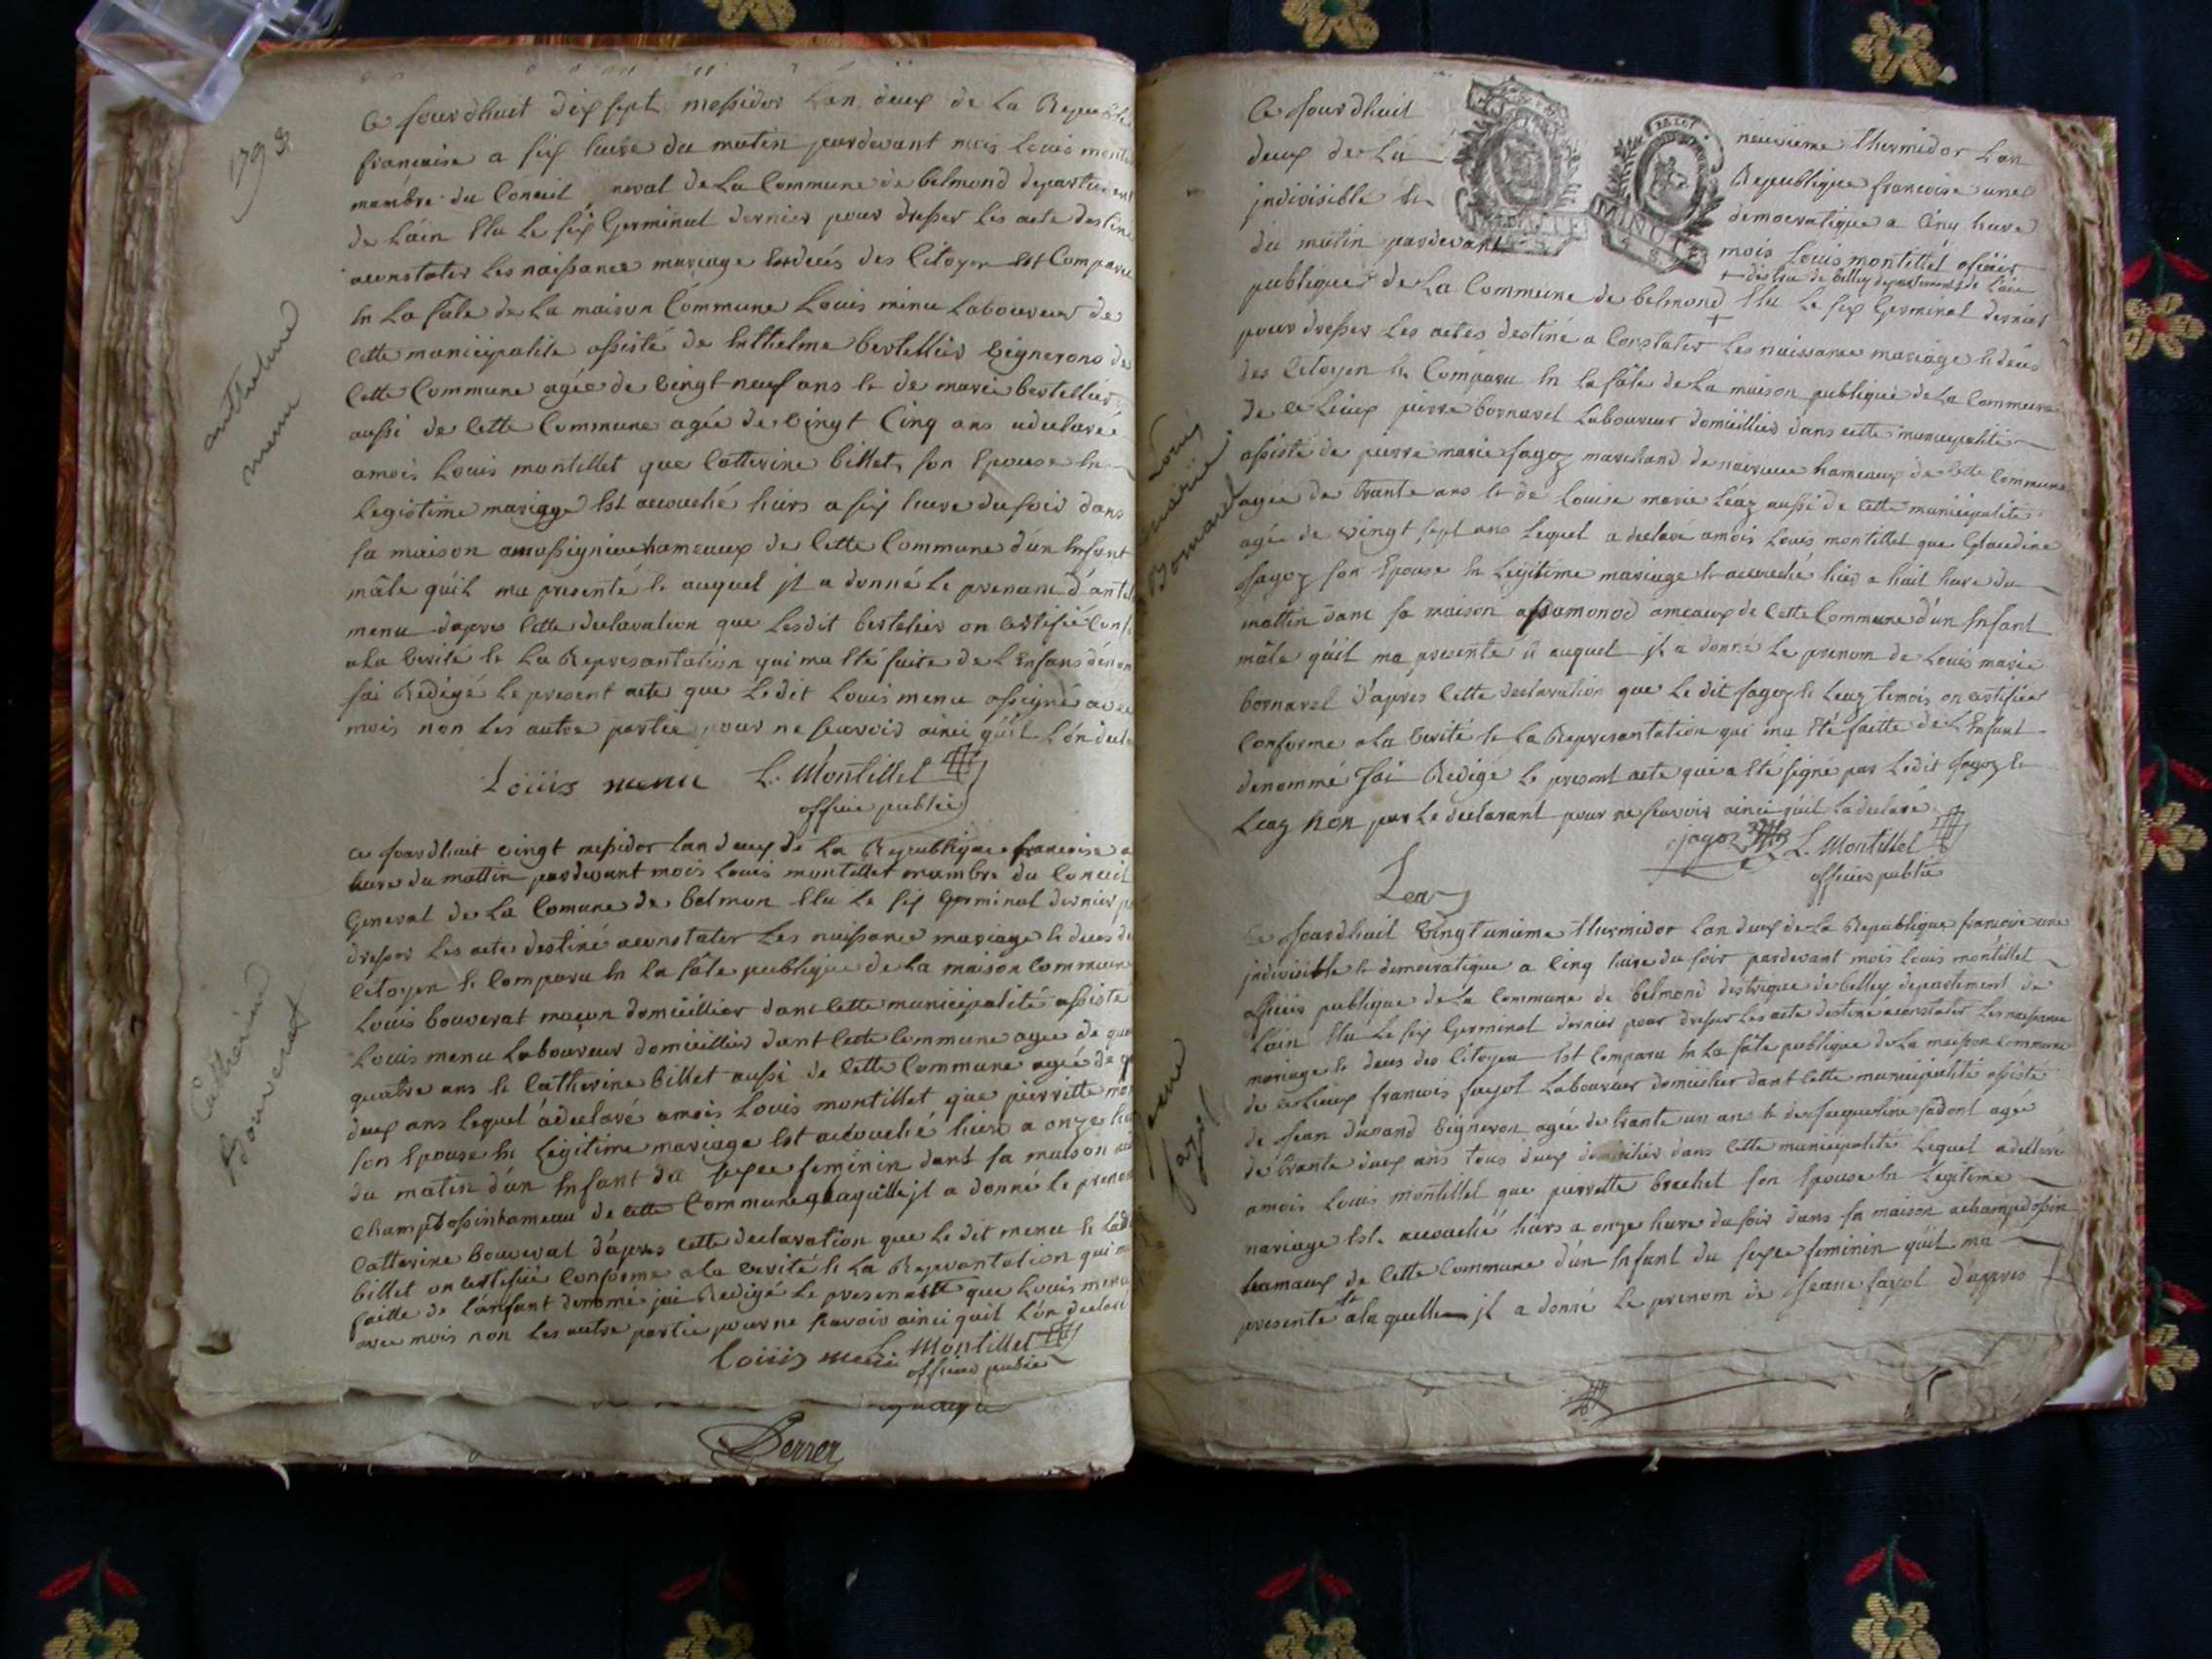 1793
Ce jourdhuit dix sept messidor Lan deux de La Republi
francaise a six heure du matin pardevant mois Louis monti
mambre du Conseil neral de La Commune de belmond departement
de Lâin Elu Le six Germinal dernier pour dresser les acte destiné
aconstater Les naissance mariage Et decés des Citoyen Est Comparu
En La sâle de La maison Commune Louis menu Laboureur de
Cette municipalite assisté de Enthelme bertellier vignerons de
Cette Commune agée de vingt neuf ans et de marie bertellier
aussi de Cette Commune agée de vingt Cinq ans adeclaré
amois Louis montillet que Catterine billet son Epouse En
Legistime mariage Est accouché hiers a six heure du soir dans
sa maison amassignieu hameaux de Cette Commune d'un Enfant
mâle quil ma presenté et auquel jl a donné Le prenom d'antel
menu d'apres Cette declaration que Lesdit bertelier on certifié Conf
ala verité et La Represantation qui ma Eté faite de L'Enfans dénom
jai Redigé Le present acte que Ledit Louis menu assigné avec
mois non Les autre partie pour ne scavoir ainci quil L'on decla
Louis menu L. Montillet
officie public
anthelme
menu
Ce jourdhuit vingt messidor Lan deux de La Republique francoise a
heure du mattin pardevant mois Louis montillet mambre du Conseil
General de La Comune de belmon Elu Le six Germinal dernier p
dresser Les acte destiné aconstater Les naissance mariage et deces de
Citoyen et Comparu En La sâle publique de La maison Commune
Louis bouverat maçon domicillier dans Cette municipalité assiste
Louis menu Laboureur domicillier dant Cette Commune agee de quar
quatre ans et Catherine billet aussi de Cette Commune agée de q
deux ans Lequel adeclaré amois Louis montillet que pierrette mo
son Epouse En Légitime mariage Est accouché hiers a onze heu
du matin d'un Enfant du sexe feminin dant sa maison a
Champdossin hameau de Cette Commune a laquelle jl a donné Le prenom
Catterine bouverat d'apres Cette declaration que Le dit menu et Ladi
billet on certifié Conforme a La verité et La Represantation qui m
faitte de L'anfant denomé jai Redigé Le present acte que Louis menu
avec mois non Les autre partie pour ne scavoir ainci quil L'on declaré
Louis menu L. Montillet
officier public
Catherine
Bouverat
Derrer
Ce jourdhuit neuvieme thermidor Lan
deux de La Republique francoise une
indivisible et democratique a Cinq heure
du mattin pardevant mois Louis montillet officier
MINUTE
+ distric de belley departement de L'ain
publique de La Commune de belmond + Elu Le six Germinal dernier
pour dresser Les actes destiné a Constater Les naissance mariage et deces
des Citoyen Et Comparu En La sâle de La maison publique de La Commune
de Ce Lieux pierre bornarel Laboureur domicillier dans cette municipalité
assisté de pierre marie fagoz marchand de nairieu hameaux de Cette Commune
agée de trante ans et de Louise marie Léaz aussi de Cette municipalité
agée de vingt sept ans Lequel a declaré amois Louis montillet que Claudine
fagoz son Epouse En Legitime mariage et accouché hier a huit heure du
mattin dant sa maison a samonod ameaux de Cette Commune d'un Enfant
mâle quil ma presenté et auquel jl a donné Le prenom de Louis marie
bornarel d'apres Cette declaration que Le dit fagoz et Leaz temois on certifier
Conforme a La verité et La Represantation qui ma Eté faitte de L'Enfant
denommé Jai Redigé Le present acte qui a Eté signé par Ledit fagoz et
Leaz non par Le declarant pour ne scavoir ainci quil La declaré
jagoz L. Montillet
officier public
Leaz
Louis
marie
Bornarel
Ce jourdhuit vingt unieme thermidor Lan deux de La Republique francoise une
indivisible et democratique a Cinq heure du soir pardevant mois Louis montillet
officier publique de La Commune de belmond destrique de belley departement de
Lain Elu Le six Germinal dernier pour dresser Les acte destiné aconstater Les naissance
mariage et deces des Citoyen Est Comparu En La sâle publique de La maison Commune
de Ce Lieux francois fayol Laboureur domicilier dant Cette municipalité assisté
de jean dunand vigneron agée de trante un ans et de jacqueline sadont agée
de trante deux ans tous deux domicilier dans Cette municipalité Lequel adeclaré
amois Louis montillet que pierrette brechet son Epouse En Legitime
mariage Est accouché hiers a onze heure du soir dans sa maison achampdossin
hamaux de Cette Commune d'un Enfant du sexe feminin quil ma
presente et alaquelle jl a donné Le prenom de jeane fayol d'apres
Jeane
fayol